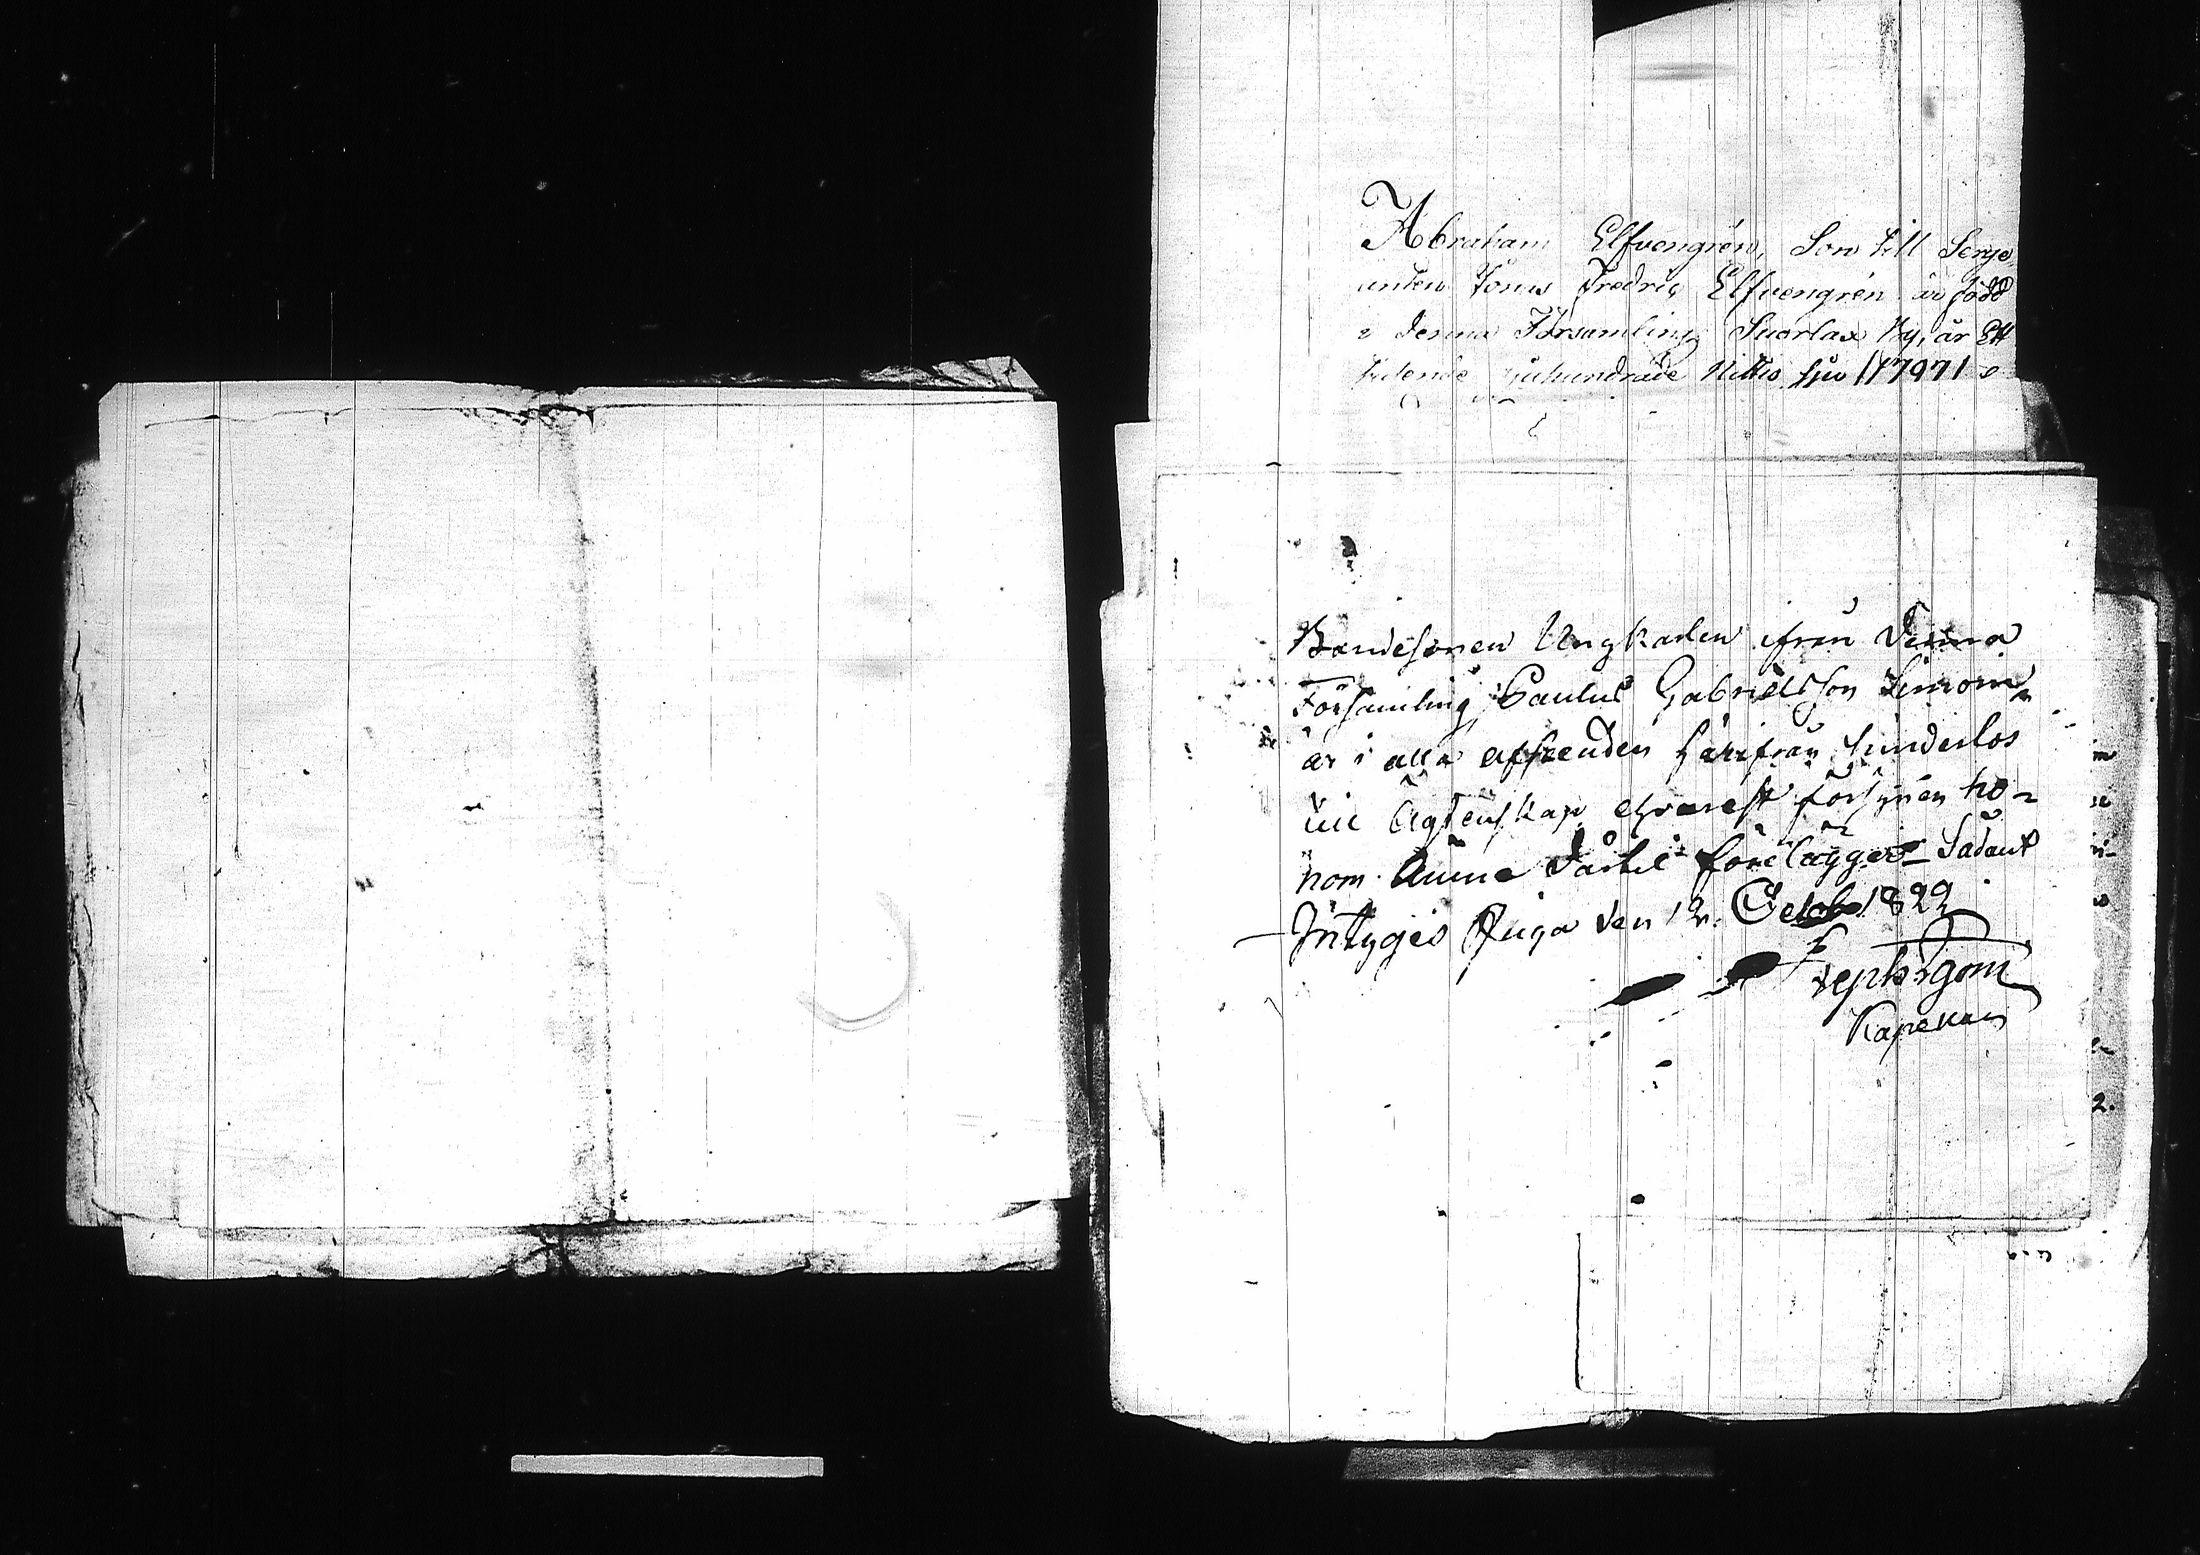 Abraham Elfvengrén, Son till Serge
anten Jonas Fredric Elfvengrén är född
i denna Församling Suorlax By, år Ett
tusende sjuhundrade Nittio sju /1797/
Bondesonen Ungkarlen ifrån denna
Församling Paulus Gabrielsson Simoin
är i alla afseenden härifrån hinderlös
till Ägtenskap ehvarest försynen ho-
nom ämne därtil förelägger Sådant
Intyges den 12. Octob 1822
Kapellan